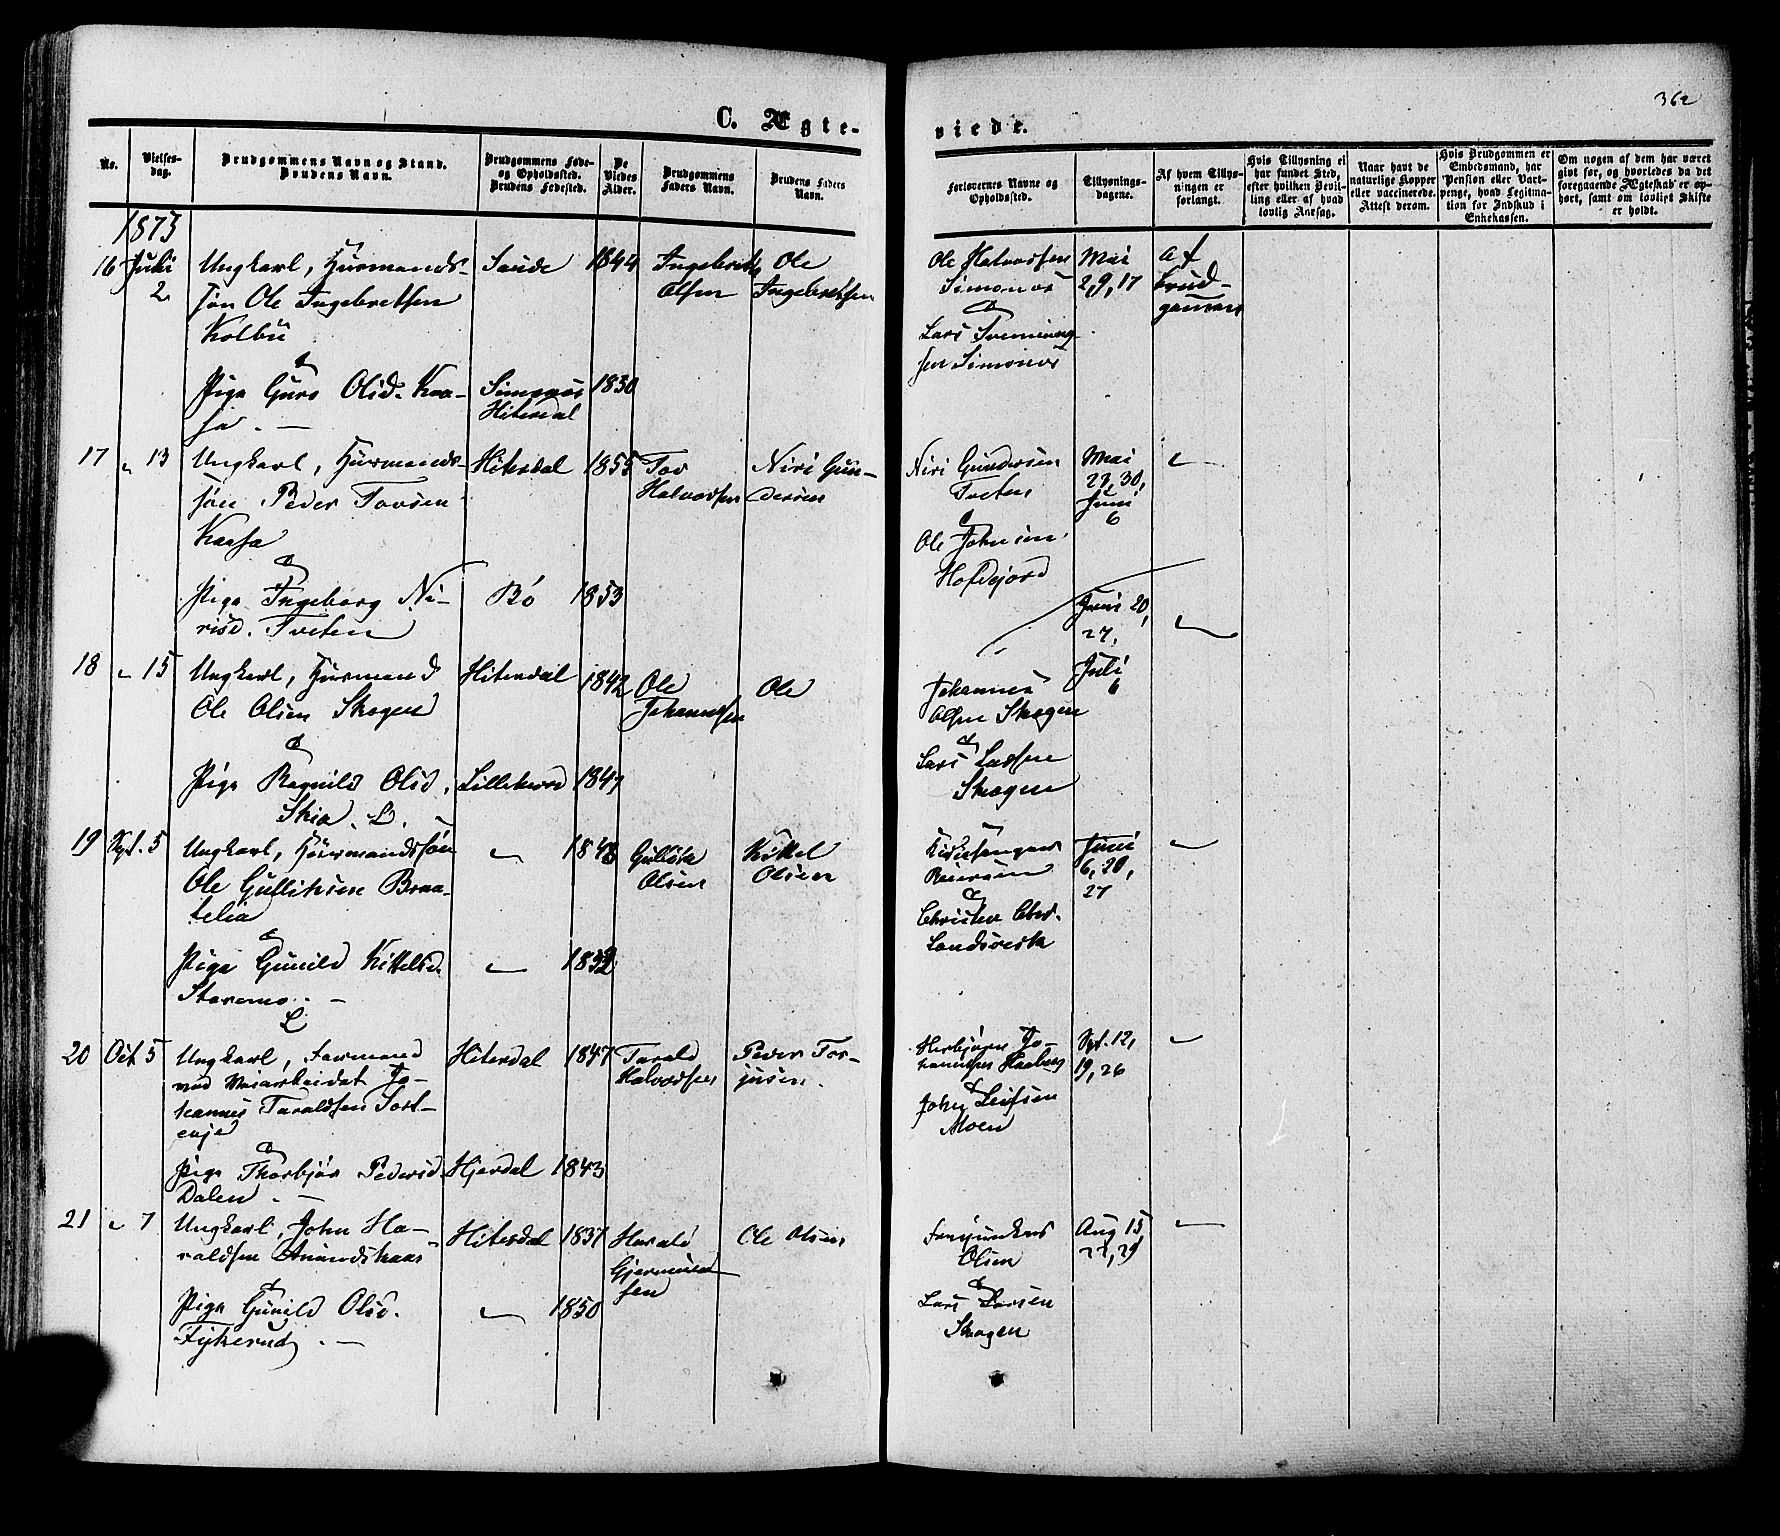 362
C. Ægte-
viede.
No.
Vielses-
dag.
Brudgommens Navn og Stand.
Brudens Navn.
Brudgommens Føde-
og Opholdssted.
Brudens Fødested.
De
Viedes
Alder.
Brudgommens
Faders Navn.
Brudens Faders
Navn.
Forlovernes Navne og
Opholdssted.
Tillysnings-
dagene.
Af hvem Tillys-
ningen er
forlangt.
Hvis Tillysning ei
har fundet Sted,
efter hvilken Bevil-
ling eller af hvad
lovlig Aarsag.
Naar havt de
naturlige Kopper
eller vaccinerede.
Attest derom.
Hvis Brudgommen er
Embedsmand, har
Pension eller Vart-
penge, hvad Legitima-
tion for Indskud i
Enkekassen.
Om nogen af dem har været
givt før, og hvorledes da det
foregaaende Ægteskab er op-
hørt, samt om lovligt Skifte
er holdt.
1873
16 Juli 2
Ungkarl, Husmands-
søn Ole Ingebretsen
Kolbu
&
Pige Guro Olsd. Kaa-
sa. —
Saude 1844
Simonös
Hiterdal 1830
Ingebret
Olsen
Ole
Ingebretsen
Ole Halvorsen
Simonös
&
Lars Svennung-
sen Simonös
Mai
2, 9, 17
Af
Brud-
gommen
17 " 13
Ungkarl, Husmands-
søn Peder Tovsen
Kaasa
&
Pige Ingeborg Ni-
risd. Tveten
Hiterdal 1855
Bö 1853
Tov
Halvorsen
Niri Gun-
dersen
Niri Gundersen
Tveten
&
Ole Johnsen
Hofdejord
Mai
29, 30,
Juni
6
"
18 " 15
Ungkarl, Husmand
Ole Olsen Skogen
&
Pige Ragnild Olsd.
Skia. L.
Hiterdal 1842
Lilleherred 1847
Ole
Johannesen
Ole
Johannes
Olsen Skogen
&
Lars Larsen
Skogen
Juni 20,
27,
Juli
6
"
19 Sept. 5
Ungkarl, Husmandssøn
Ole Gulliksen Braa-
telia
&
Pige Gunild Kittelsd.
Staremo. —
L
" 1848
" 1832
Gullik
Olsen
Kittel
Olsen
Kirkesanger
Reiersen
&
Christen Chr.
Landsverk
Juni
6, 20,
27
"
20 Oct. 5
Ungkarl,
ved Jo-
hannes Taraldsen Sort-
evje
&
Pige Thorbjör Pedersd.
Dalen. —
Hiterdal 1847
Hjerdal 1843
Tarald
Halvorsen
Peder Tor-
jusen.
Herbjörn Jo-
hannesen Haaberg
&
John Leifsen
Moen
Sept. 12,
19, 26
"
21 " 7
Ungkarl, John Ha-
raldsen Amundskaas
&
Pige Gunild Olsd.
Fykerud. —
Hiterdal 1837
" 1850
Harald
Gjermund-
sen
Ole Olsen
Olsen
&
Lars Larsen
Skogen
Aug 15,
22, 29
"